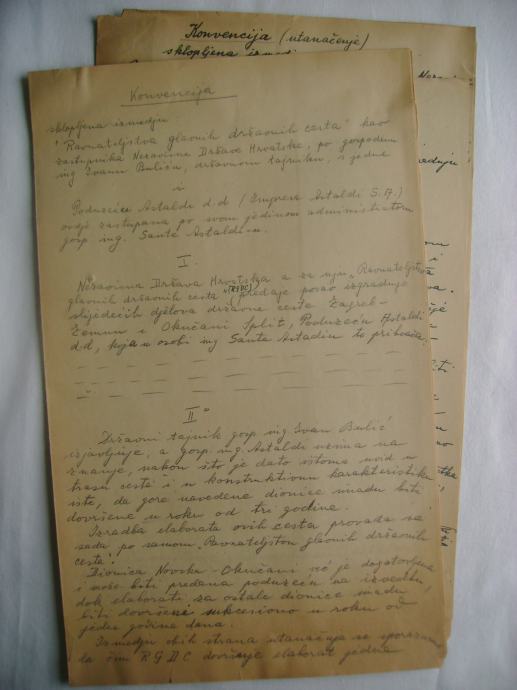 Konvencija (utanačenje)
sklopljena izmedju
Konvencija
sklopljena izmedju
"Ravnateljstva glavnih državnih cesta" kao
zastupnika Nezavisne Države Hrvatske, po gospodinu
ing Ivanu Buliću, državnom tajniku, s jedne
i
Poduzeća Astaldi d.d (Empresa Astaldi S.A.)
ovdje zastupana po svom jedinom administratoru
gosp ing. Sante Astaldi-u.
I.
Nezavisna Država Hrvatska a za nju "Ravnateljstvo
glavnih državnih cesta" (RGDC) predaje posao izgradnje
slijedećih djelova državne ceste Zagreb-
Zemun i Okučani Split, Poduzeću Astaldi
d.d, koja u osobi ing Sante Astaldia to prihvaća.
II.
Državni tajnik gosp ing. Ivan Bulić
izjavljuje, a gosp. ing. Astaldi uzima na
znanje, nakon što je dato istome uvid u
trasu ceste i u konstruktivnu karakteristiku
iste, da gore navedene dionice imadu biti
dovršene u roku od tri godine.
Izradba elaborata ovih cesta provada se
sada po samom "Ravnateljstvu glavnih državnih
cesta".
Dionica Novska - Okučani već je dogotovljena
i može biti predana poduzeću na izvedbu,
dok elaborati za ostale dionice imadu
biti dovršeni sukcesivno u roku od
jedne godine dana.
Izmedju obih strana utanačuje se sporazum
da čim RGDC dovršuje elaborat jedne